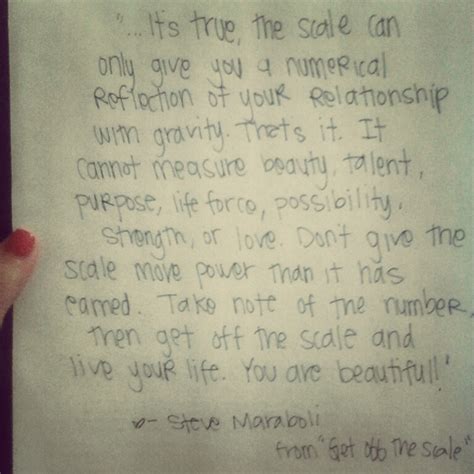 "... It's true, the scale can
only give you a numerical
Reflection of your Relationship
with gravity. Thats it. It
cannot measure beauty, talent,
purpose, life force, possibility,
strength, or love. Don't give the
scale more power than it has
earned. Take note of the number,
then get off the scale and
live your life. You are beautiful!"
- Steve Maraboli
from "Get Off The Scale"